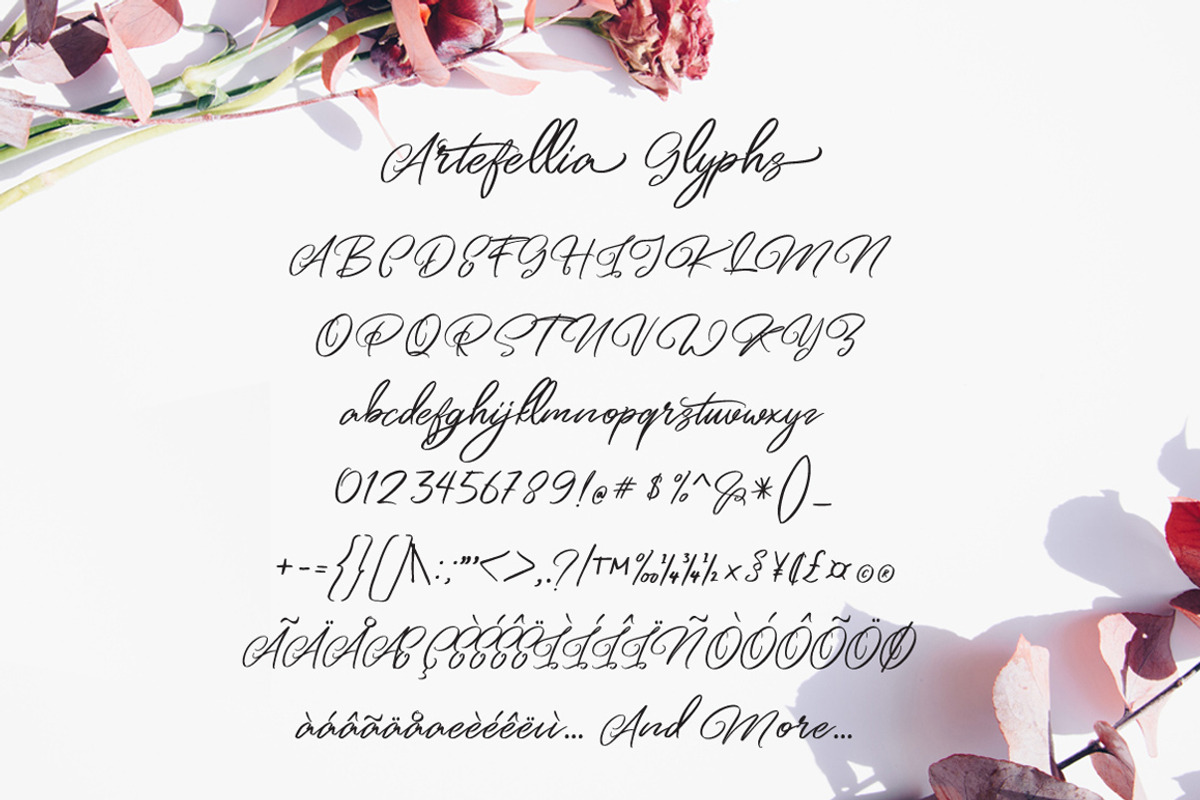 Artefellia Glyphs
ABCDEFGHIJKLMN
OPQRSTUVWXYZ
abcdefghijklmnopqrstuvwxyz
0123456789!@# $ %^&*()_
+-={}[]|\:;"'<>,.?/™‰¼¾½×§¥₵£¤©®
ÃÄÅÆÇÈÉÊËÌÍÎÏÑÒÓÔÕÖØ
àáâãäåaeèéêëıì... And More...